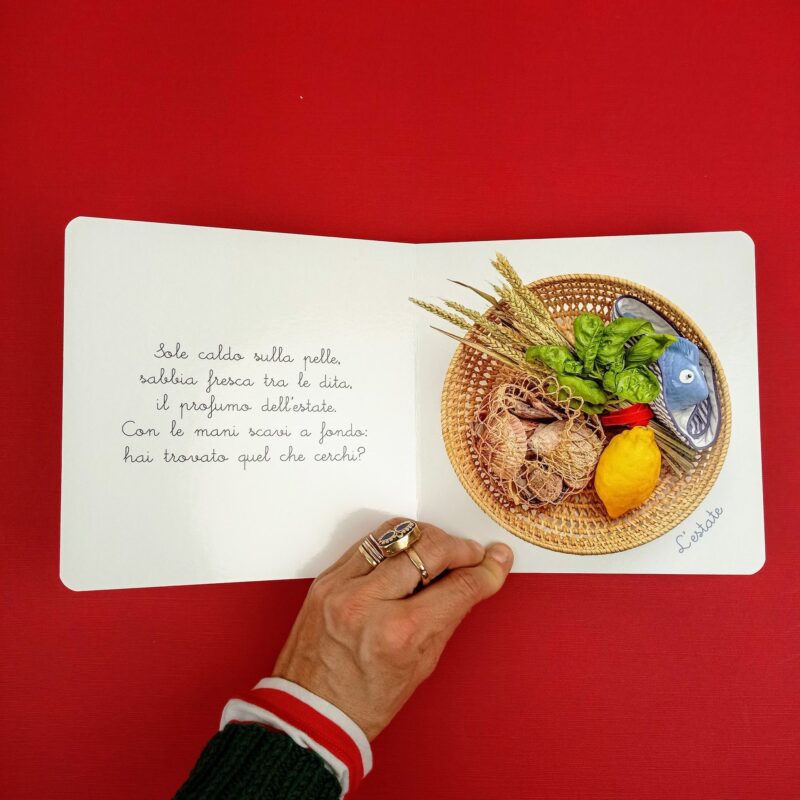 Sole caldo sulla pelle,
sabbia fresca tra le dita,
il profumo dell'estate.
Con le mani scavi a fondo:
hai trovato quel che cerchi?
L'estate